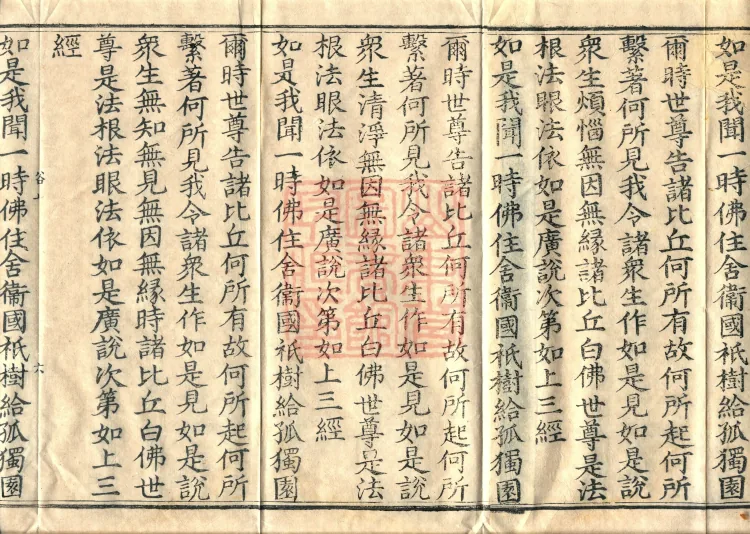 如是我聞一時佛住舍衞國祇樹給孤獨園
爾時世尊告諸比丘何所有故何所起何所
繫著何所見我令諸衆生作如是見如是說
衆生煩惱無因無緣諸比丘白佛世尊是法
根法眼法依如是廣說次第如上三經
如是我聞一時佛住舍衞國祇樹給孤獨園
爾時世尊告諸比丘何所有故何所起何所
繫著何所見我令諸衆生作如是見如是說
衆生清淨無因無緣諸比丘白佛世尊是法
根法眼法依如是廣說次第如上三經
如是我聞一時佛住舍衞國祇樹給孤獨園
爾時世尊告諸比丘何所有故何所起何所
繫著何所見我令諸衆生作如是見如是說
衆生無知無見無因無緣時諸比丘白佛世
尊是法根法眼法依如是廣說次第如上三
經
谷上 六
如是我聞一時佛住舍衞國祇樹給孤獨園